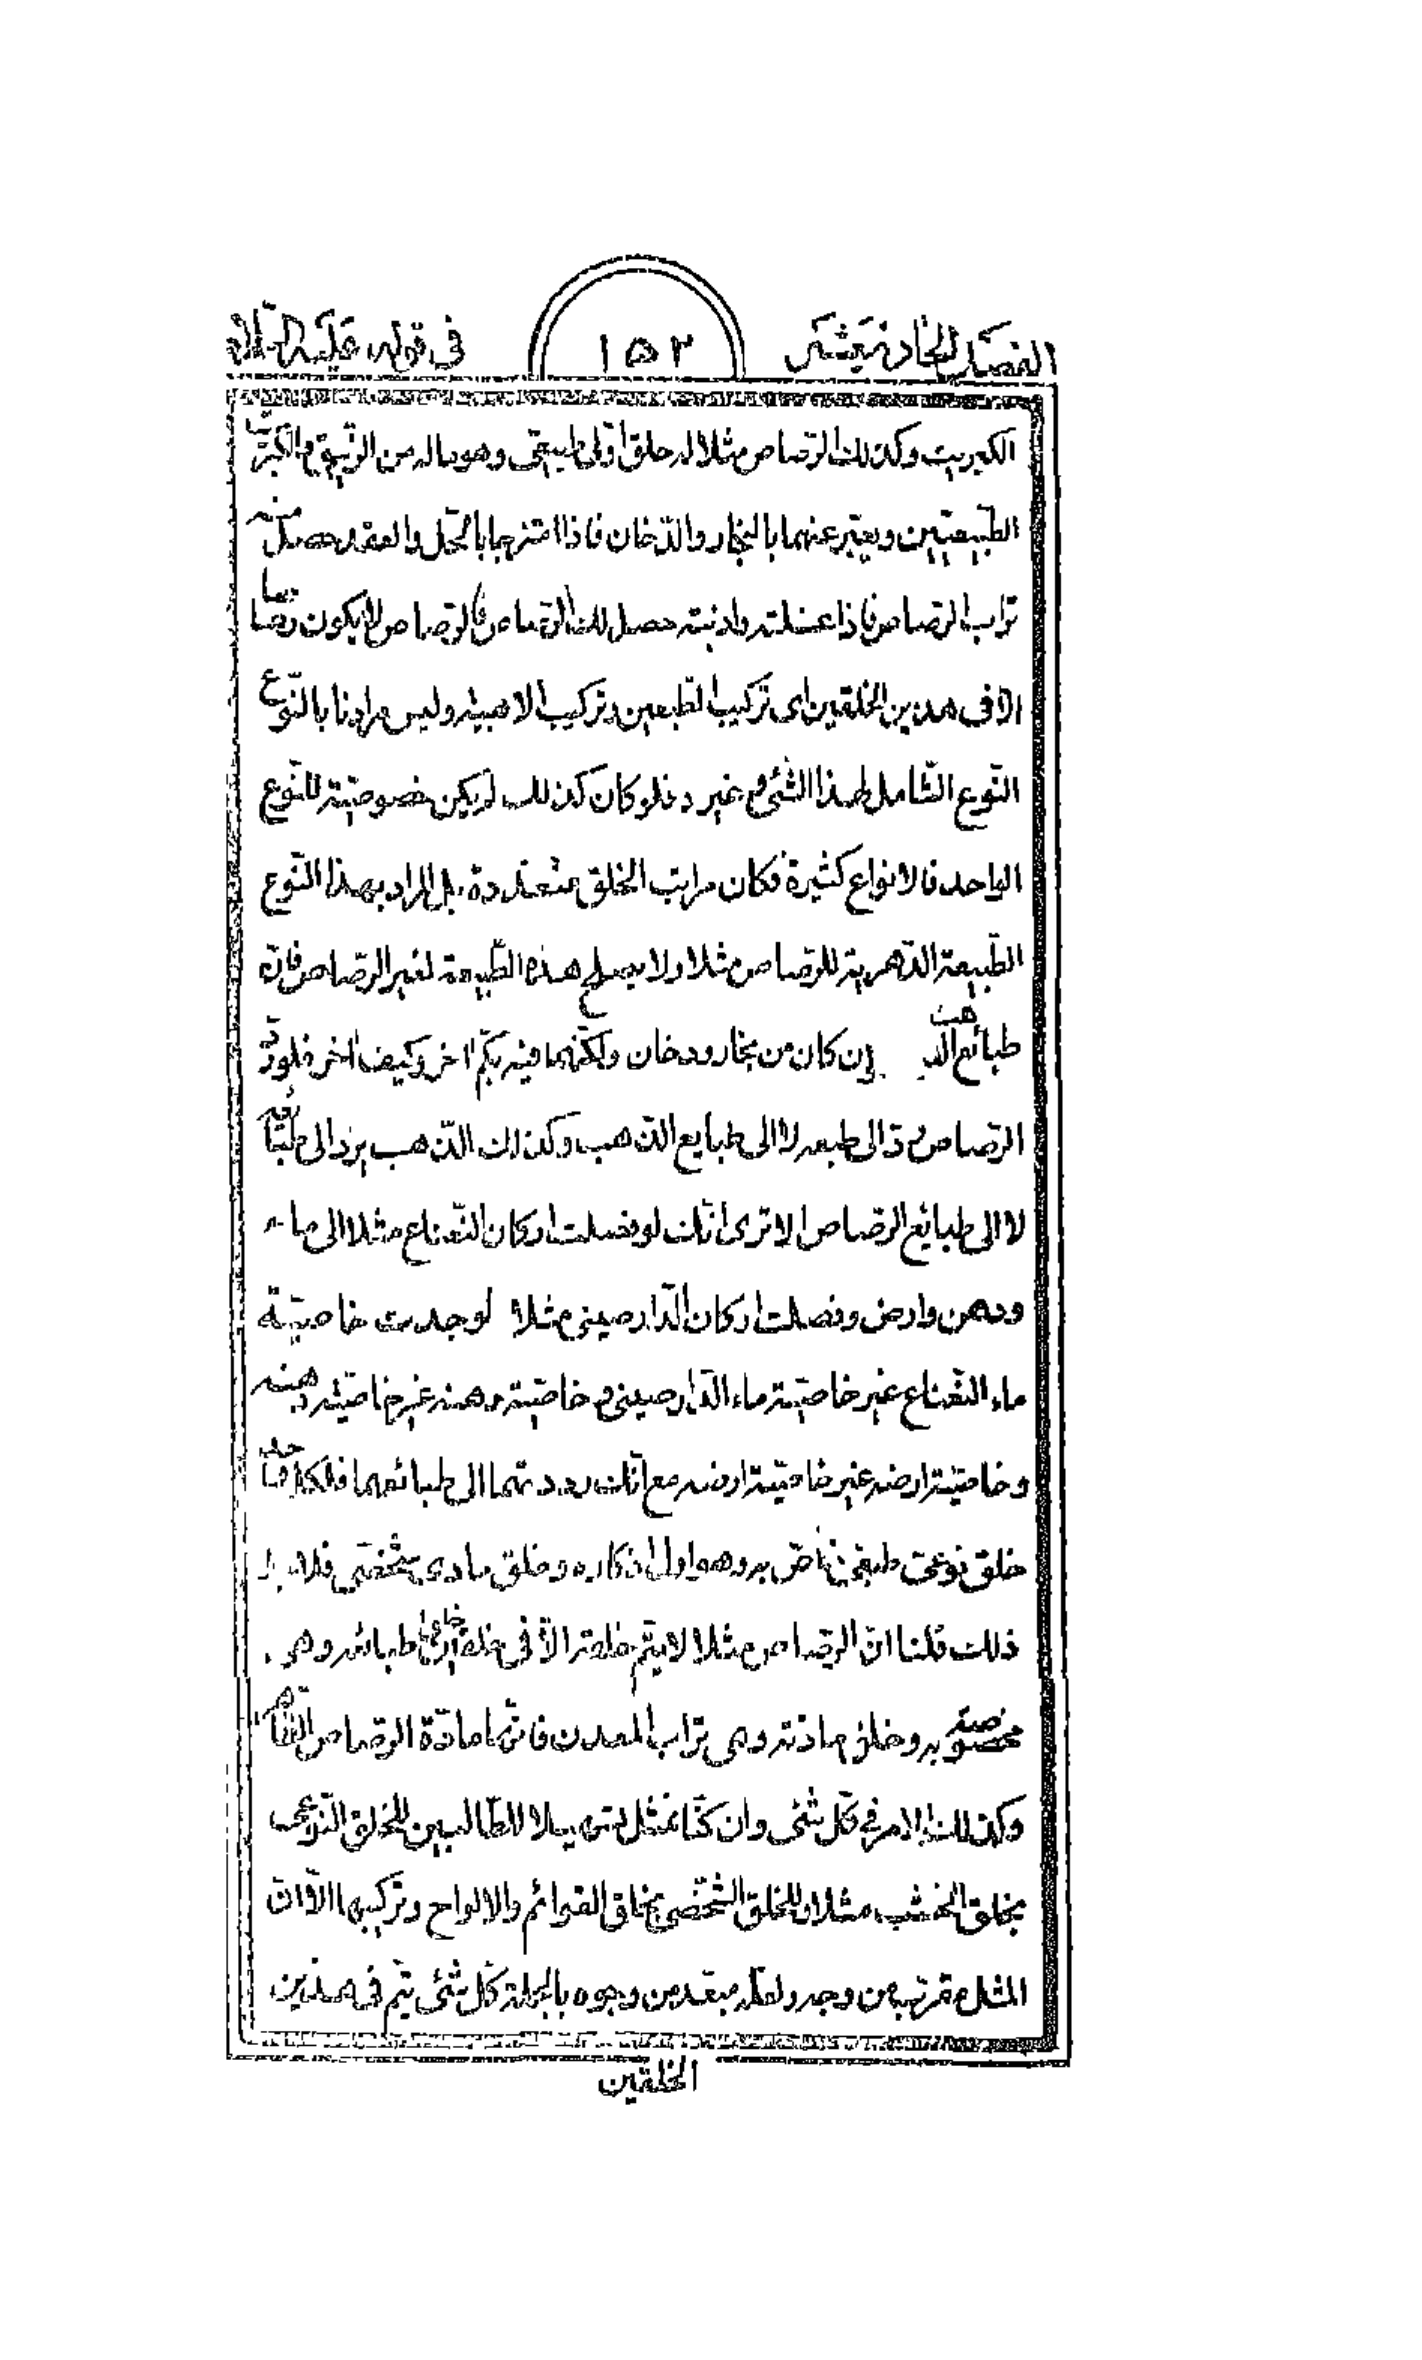 الفصل الحادیعشر
۱۵۲
فی قوله علیه السلام
الکبریت وکذلک الرصاص مثلا له خلق اولی طبیعی وهو ماله من الزیبق والکبریت
الطبیعیین ویعبر عنهما بالبخار والدخان فاذا امتزجا بالحل والعقد حصل منه
تراب الرصاص فاذا غسلته واذبته حصل لک الرصاص فالرصاص لا یکون رصاصا
الا فی هذین الخلقین ای ترکیب الطبعین وترکیب ولیس مرادنا بالنوع
النوع الشامل لهذا الشئ و غیره فلو کان کذلک لم یکن خصوصیة للنوع
الواحد فالانواع کثیرة فکان مراتب الخلق متعددة بل المراد بهذا النوع
الطبیعة الدهریة للرصاص مثلا ولا یصلح هذه الطبیعة لغیر الرصاص فان
طبائع الذهب إن کان من بخار ودخان ولکنهما فیه بکم اخر وکیف اخر فلو رد
الرصاص رد الی طبعه لا الی طبایع الذهب وکذلک الذهب یرد الی طبایعه
لا الی طبایع الرصاص الا تری انک لو فصلت ارکان النعناع مثلا الی ماء
ودهن وارض وفصلت ارکان الدارصینی مثلا لوجدت خاصیة
ماء النعناع غیر خاصیة ماء الدارصینی و خاصیة دهنه غیر خاصیة دهنه
و خاصیة ارضه غیر خاصیة ارضه مع انک رددتهما الی طبائعهما فلکل واحد
خلق نوعی طبیعی خاص به وهو اول اذکاره وخلق مادی شخصی
ذلک قلنا ان الرصاص مثلا لا یتم خلقته الا فی خلقین طبائعه وهی
مخصوصة به وخلق مادته وهی تراب المعدن فانها مادة الرصاص
وکذلک الامر فی کل شئ وان کنا نمثل تسهیلا للطالبین للخلق النوعی
بخلق الخشب مثلا وللخلق الشخصی بخلق القوائم والالواح وترکیبها الا ان
المثل مقرب من وجه ولعله مبعد من وجوه بالجملة کل شئ یتم فی هذین
الخلقین